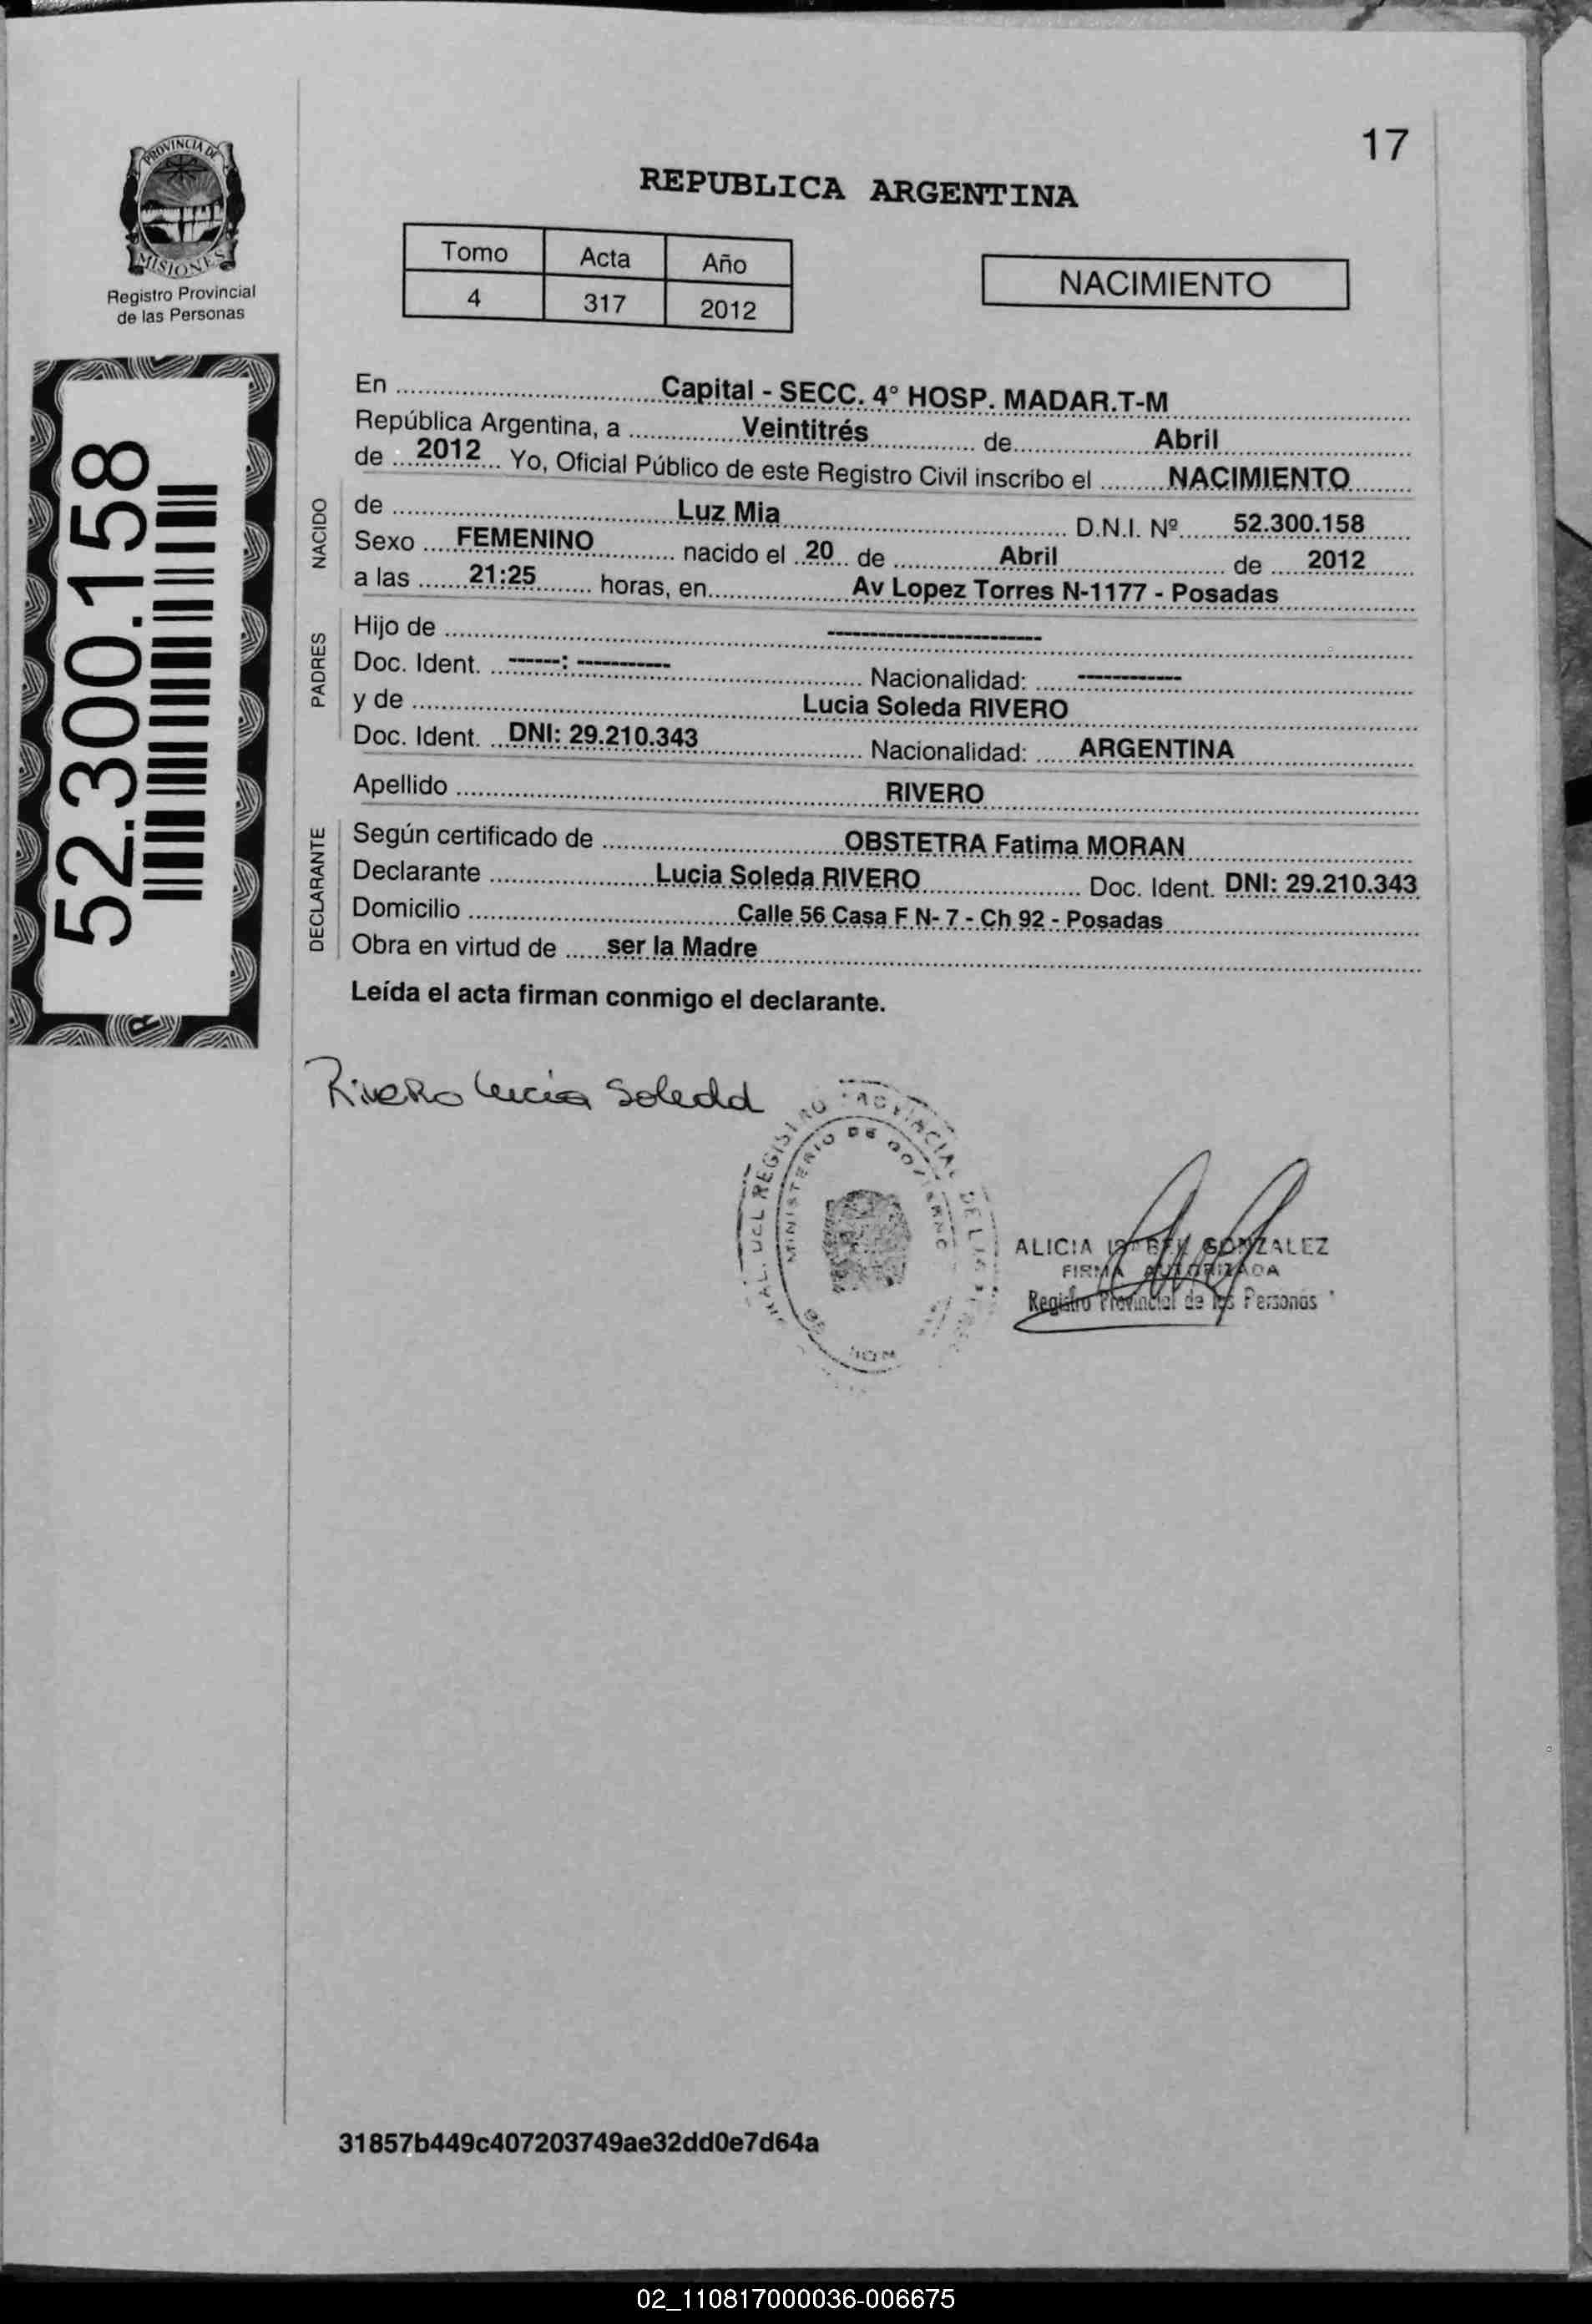 17
PROVINCIA DE
MISIONES
Registro Provincial
de las Personas
REPUBLICA ARGENTINA
Tomo Acta Año
4 317 2012
NACIMIENTO
52.300.158
En Capital - SECC. 4° HOSP. MADAR.T-M
República Argentina, a Veintitrés de Abril
de 2012 Yo, Oficial Público de este Registro Civil inscribo el NACIMIENTO
NACIDO
de Luz Mia D.N.I. Nº 52.300.158
Sexo FEMENINO nacido el 20 de Abril de 2012
a las 21:25 horas, en Av Lopez Torres N-1177 - Posadas
PADRES
Hijo de -----------------------
Doc. Ident. ------: ----------- Nacionalidad: ------------
y de Lucia Soleda RIVERO
Doc. Ident. DNI: 29.210.343 Nacionalidad: ARGENTINA
Apellido RIVERO
DECLARANTE
Según certificado de OBSTETRA Fatima MORAN
Declarante Lucia Soleda RIVERO Doc. Ident. DNI: 29.210.343
Domicilio Calle 56 Casa F N- 7 - Ch 92 - Posadas
Obra en virtud de ser la Madre
Leída el acta firman conmigo el declarante.
Rivero Lucia Soledd
REGISTRO PROVINCIAL DE
MINISTERIO DE GOBIERNO
ALICIA GONZALEZ
FIRMA AUTORIZADA
Registro Provincial de los Personas
31857b449c407203749ae32dd0e7d64a
02_110817000036-006675